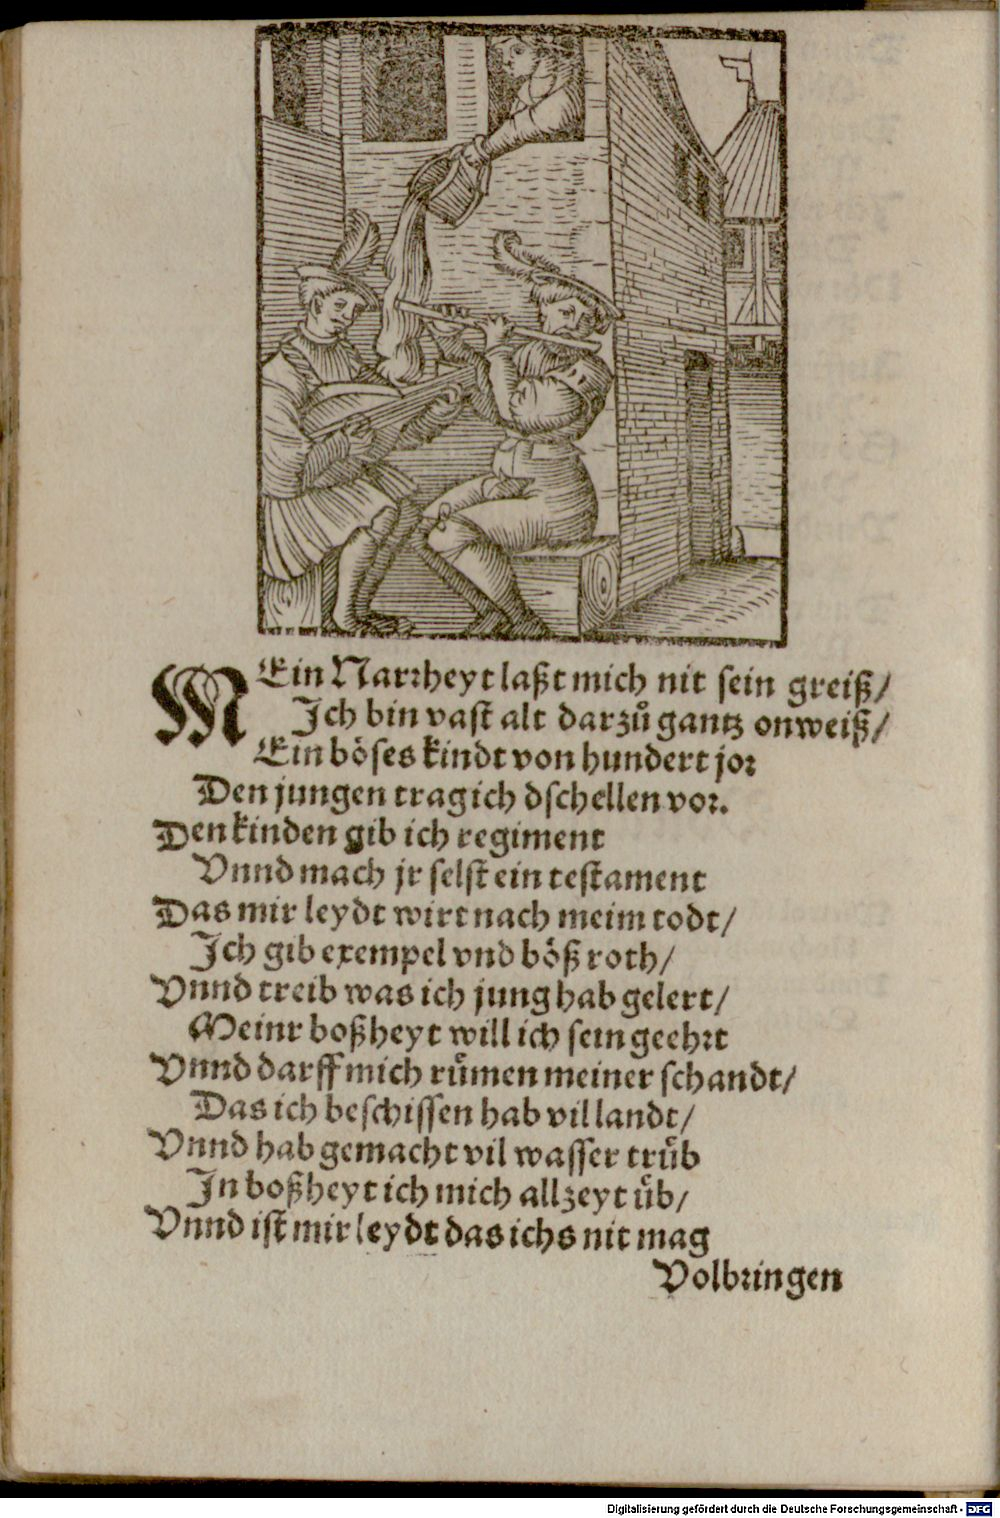 MEin Narrheyt laßt mich nit sein greiß/
Ich bin vast alt darzů gantz onweiß/
Ein böses kindt von hundert jor
Den jungen trag ich dschellen vor.
Den kinden gib ich regiment
Vnnd mach jr selst ein testament
Das mir leydt wirt nach meim todt/
Ich gib exempel vnd böß roth/
Vnnd treib was ich jung hab gelert/
Meinr boßheyt will ich sein geehrt
Vnnd darff mich růmen meiner schandt/
Das ich beschissen hab vil landt/
Vnnd hab gemacht vil wasser trůb
In boßheyt ich mich allzeyt ůb/
Vnnd ist mir leydt das ichs nit mag
Volbringen
Digitalisierung gefördert durch die Deutsche Forschungsgemeinschaft - DFG